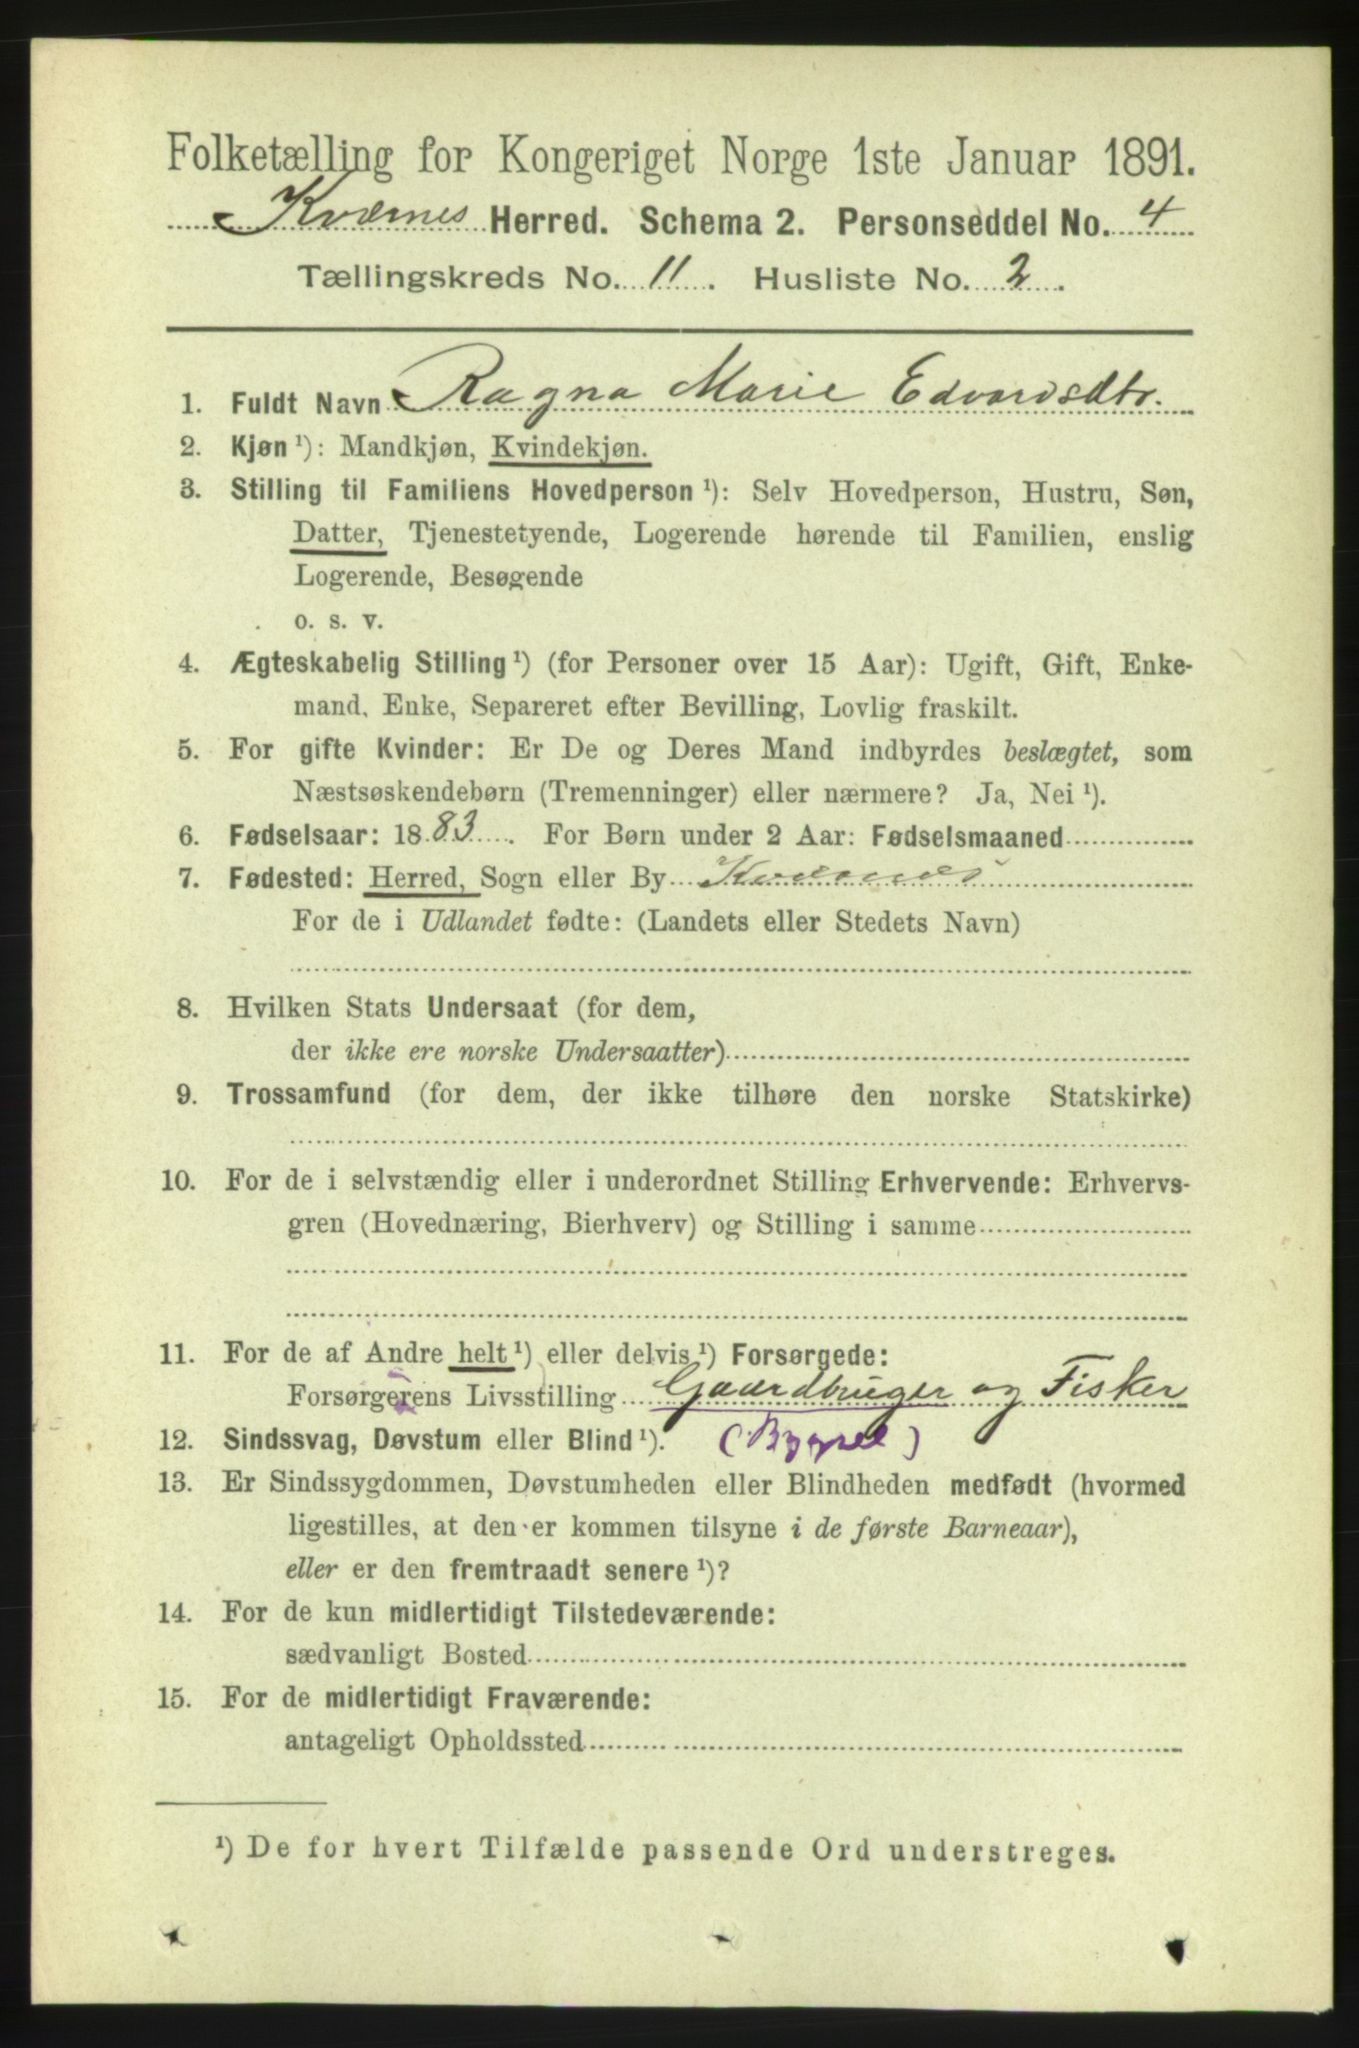 Folketælling for Kongeriget Norge 1ste Januar 1891.
Kværnes Herred. Schema 2. Personseddel No. 4
Tællingskreds No. 11. Husliste No. 2.
1. Fuldt Navn Ragna Marie Edvardsdtr.
2. Kjøn ¹): Mandkjøn, Kvindekjøn.
3. Stilling til Familiens Hovedperson ¹): Selv Hovedperson, Hustru, Søn,
Datter, Tjenestetyende, Logerende hørende til Familien, enslig
Logerende, Besøgende
o. s. v.
4. Ægteskabelig Stilling ¹) (for Personer over 15 Aar): Ugift, Gift, Enke-
mand, Enke, Separeret efter Bevilling, Lovlig fraskilt.
5. For gifte Kvinder: Er De og Deres Mand indbyrdes beslægtet, som
Næstsøskendebørn (Tremenninger) eller nærmere? Ja, Nei ¹).
6. Fødselsaar: 1883. For Børn under 2 Aar: Fødselsmaaned
7. Fødested: Herred, Sogn eller By Kværnes
For de i Udlandet fødte: (Landets eller Stedets Navn)
8. Hvilken Stats Undersaat (for dem,
der ikke ere norske Undersaatter)
9. Trossamfund (for dem, der ikke tilhøre den norske Statskirke)
10. For de i selvstændig eller i underordnet Stilling Erhvervende: Erhvervs-
gren (Hovednæring, Bierhverv) og Stilling i samme
11. For de af Andre helt ¹) eller delvis ¹) Forsørgede:
Forsørgerens Livsstilling Gaardbruger og Fisker
12. Sindssvag, Døvstum eller Blind ¹). (Bygsel)
13. Er Sindssygdommen, Døvstumheden eller Blindheden medfødt (hvormed
ligestilles, at den er kommen tilsyne i de første Barneaar),
eller er den fremtraadt senere ¹)?
14. For de kun midlertidigt Tilstedeværende:
sædvanligt Bosted
15. For de midlertidigt Fraværende:
antageligt Opholdssted
¹) De for hvert Tilfælde passende Ord understreges.